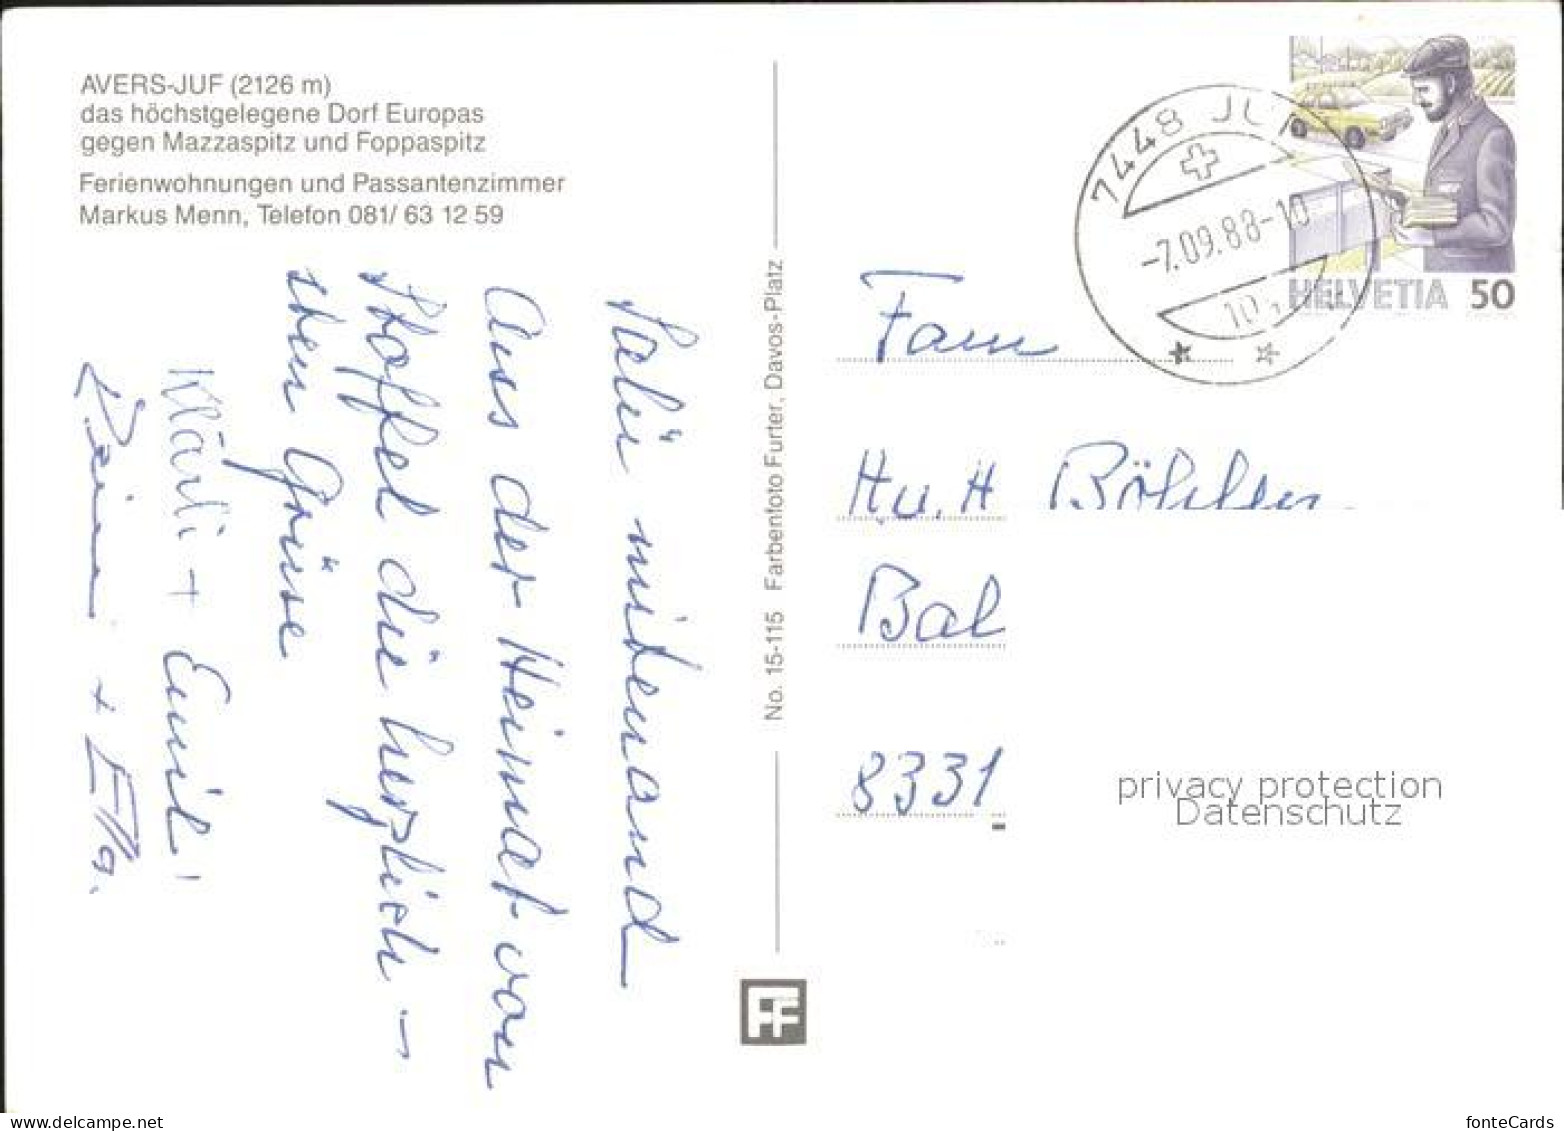 AVERS-JUF (2126 m)
das höchstgelegene Dorf Europas
gegen Mazzaspitz und Foppaspitz
Ferienwohnungen und Passantenzimmer
Markus Menn, Telefon 081/ 63 12 59
Salü mitenand
Aus der Heimat von
Stoffel die herzlich-
sten Grüsse
Klärli + Emil!
+ Ella.
No. 15-115 Farbenfoto Furter, Davos-Platz
FF
7448 JUF
-7.09.88-10
HELVETIA 50
Fam
H u. H
Bal
8331
privacy protection
Datenschutz
www.delcampe.net
fonteCards